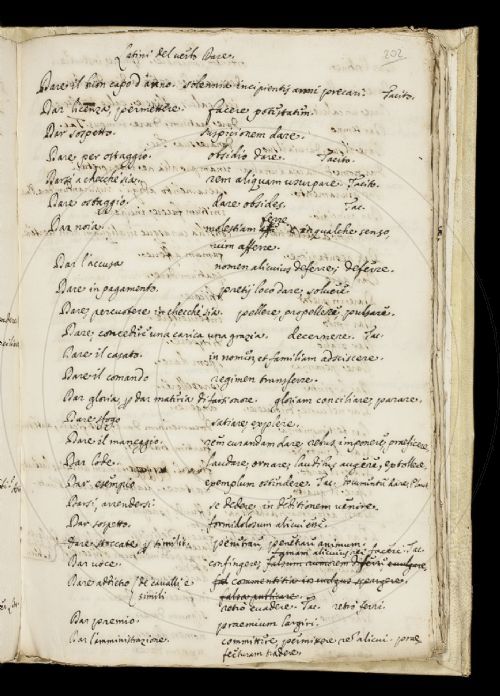 202
Latini del verbo Dare.
Dare il buon capo d'anno. solemnia incipientis anni precari. Tacito.
Dar licenza, permettere. facere potestatem.
Dar sospetto. suspicionem dare.
Dare per ostaggio. obsidio dare. Tacito.
Darsi a checché sia. rem aliquam usurpare. Tacito.
Dare ostaggio. dare obsides. Tac.
Dar noia. molestiam ferre in qualche senso
vim afferre.
Dar l'accusa nomen alicuius deferre, deferre.
Dare in pagamento. pretij loco dare, solvere.
Dare, percuotere in checché sia. pellere, propellere, pulsare.
Dare, concedere una carica, una grazia. decernere. Tac.
Dare il casato. in nomen, et familiam adsciscere.
Dare il comando regimen transferre.
Dar gloria, dar materia di farsi onore. gloriam conciliare, parare.
Dare sfogo satiare, explere.
Dare il maneggio. rem curandam dare, rebus imponere, praeficere.
Dar lode. laudare, ornare, laudibus augere, extollere.
Dar esempio exemplum ostendere. Tac. documentum dare, Plaut.
Darsi, arrendersi. se dedere, in deditionem venire.
Dar sospetto. formidolosum alicui esse.
Dare stoccate, simili. penetrare, penetrare animum.
famam alicuius rei facere. Tac.
Dar voce. confingere, falsum rumorem
commentitia in vulgus spargere.
falsa publicare.
Dare addietro, de cavalli e simili retro evadere. Tac. retro ferri.
Dar premio. praemium largiri.
Dar l'amministrazione. committere, permittere rem alicui, prae
fecturam tradere.